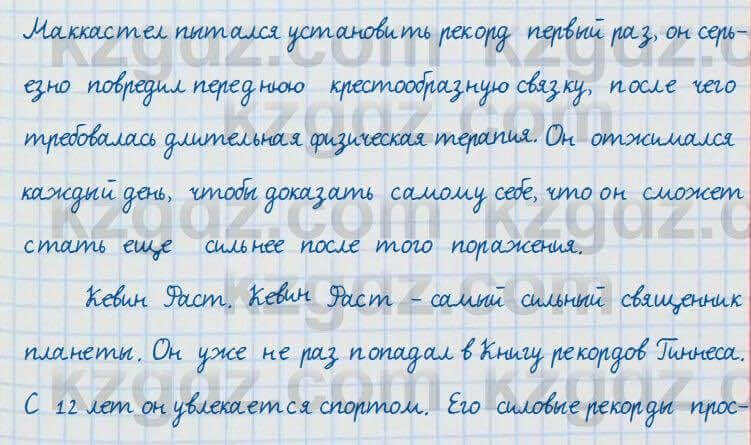 Маккастел пытался установить рекорд первый раз, он серь-
езно повредил переднюю крестообразную связку, после чего
требовалась длительная физическая терапия. Он отжимался
каждый день, чтобы доказать самому себе, что он сможет
стать еще сильнее после того поражения.
Кевин Фаст. Кевин Фаст - самый сильный священник
планеты. Он уже не раз попадал в Книгу рекордов Гиннеса.
С 12 лет он увлекается спортом. Его силовые рекорды прос-
kzgdz.com